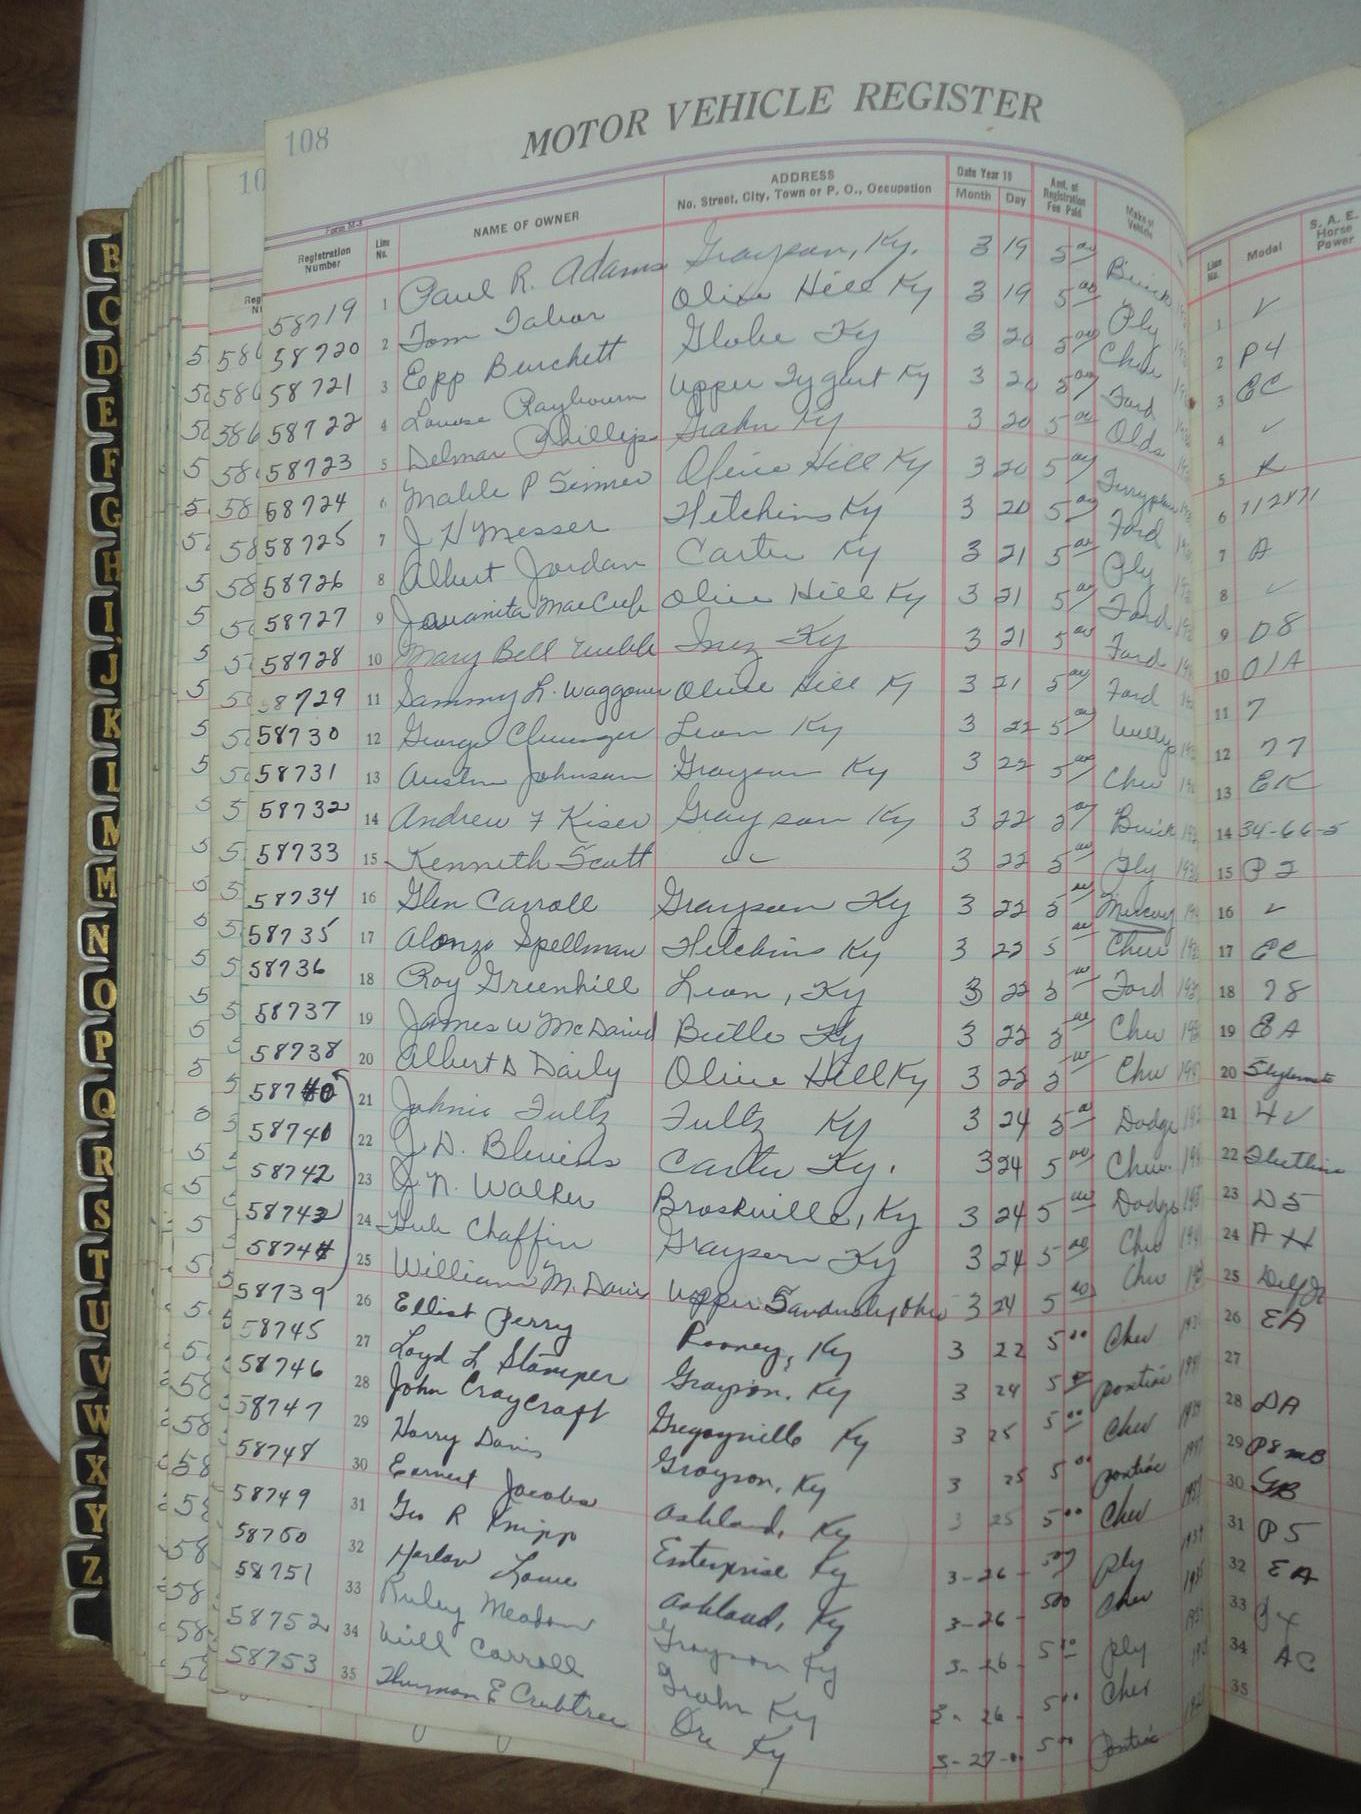 108
MOTOR VEHICLE REGISTER
Form M-8
Registration Number Line No. NAME OF OWNER ADDRESS No. Street, City, Town or P. O., Occupation Date Year 19 Month Day Amt. of Registration Fee Paid Make of Vehicle Line No. Model S. A. E. Horse Power
58719 1 Paul R. Adams Grayson, Ky. 3 19 5 00 Buick 1 ✓
58720 2 Tom Tabor Olive Hill Ky 3 19 5 00 Ply 2 P4
58721 3 Epp Burchett Globe Ky 3 20 5 00 Chev 3 EC
58722 4 Louise Raybourn Upper Tygart Ky 3 20 5 00 Ford 4 ✓
58723 5 Delmar Phillips Grahn Ky 3 20 5 00 Olds 5
58724 6 Olive Hill Ky 3 20 5 00 6
58725 7 J H Messer Hitchins Ky 3 20 5 00 Ford 7 A
58726 8 Albert Jordan Carter Ky 3 21 5 00 Ply 8 ✓
58727 9 Olive Hill Ky 3 21 5 00 Ford 9 D8
58728 10 Mary Bell Inez Ky 3 21 5 00 Ford 10 01A
58729 11 Sammy L. Waggoner Olive Hill Ky 3 21 5 00 Ford 11 7
58730 12 George Leon Ky 3 22 5 00 Willys 12 77
58731 13 Austin Johnson Grayson Ky 3 22 5 00 Chev 13 EK
58732 14 Andrew F Kiser Grayson Ky 3 22 5 00 Buick 14 34-66-5
58733 15 Kenneth Scott " " 3 22 5 00 Ply 15 P2
58734 16 Glen Carroll Grayson Ky 3 22 5 00 Mercury 16 ✓
58735 17 Alonzo Spellman Hitchins Ky 3 22 5 00 Chev 17 EC
58736 18 Roy Greenhill Leon, Ky 3 22 5 00 Ford 18 78
58737 19 James W McDavid Ky 3 22 5 00 Chev 19 EA
58738 20 Albert D Daily Olive Hill Ky 3 22 5 00 Chev 20
58740 21 Johnie Fultz Fultz Ky 3 24 5 00 Dodge 21
58741 22 J. D. Blevins Carter Ky. 3 24 5 00 Chev. 22
58742 23 J. N. Walker Ky 3 24 5 00 Dodge 23 D5
58743 24 Hub Chaffin Grayson Ky 3 24 5 00 Chev 24 AH
58744 25 William M. Davis Upper Sandusky Ohio 3 24 5 00 Chev 25
58739 26 Elliot Perry Rooney, Ky 3 22 5 00 Chev 26 EA
58745 27 Loyd L Stamper Grayson, Ky 3 24 5 00 pontiac 27
58746 28 John Craycraft Gregoryville Ky 3 25 5 00 Chev 28 DA
58747 29 Harry Davis Grayson, Ky 3 25 5 00 pontiac 29 P8mB
58748 30 Earnest Jacobs Ashland, Ky 3 25 5 00 Chev 30 GB
58749 31 Geo R Knipp Enterprise Ky 3-26- 5 00 ply 31 P5
58750 32 Harlan Lowe Ashland, Ky 3-26- 5 00 Chev 32 EA
58751 33 Ruley Meadow Grayson Ky 3-26- 5 00 ply 33
58752 34 Will Carroll Grahn Ky 3-26- 5 00 Chev 34 AC
58753 35 Thurman E Crabtree Ore Ky 3-27- 5 00 pontiac 35
B
C
D
E
F
G
H
I
J
K
L
M
M
N
O
P
Q
R
S
T
U
V
W
X
Y
Z